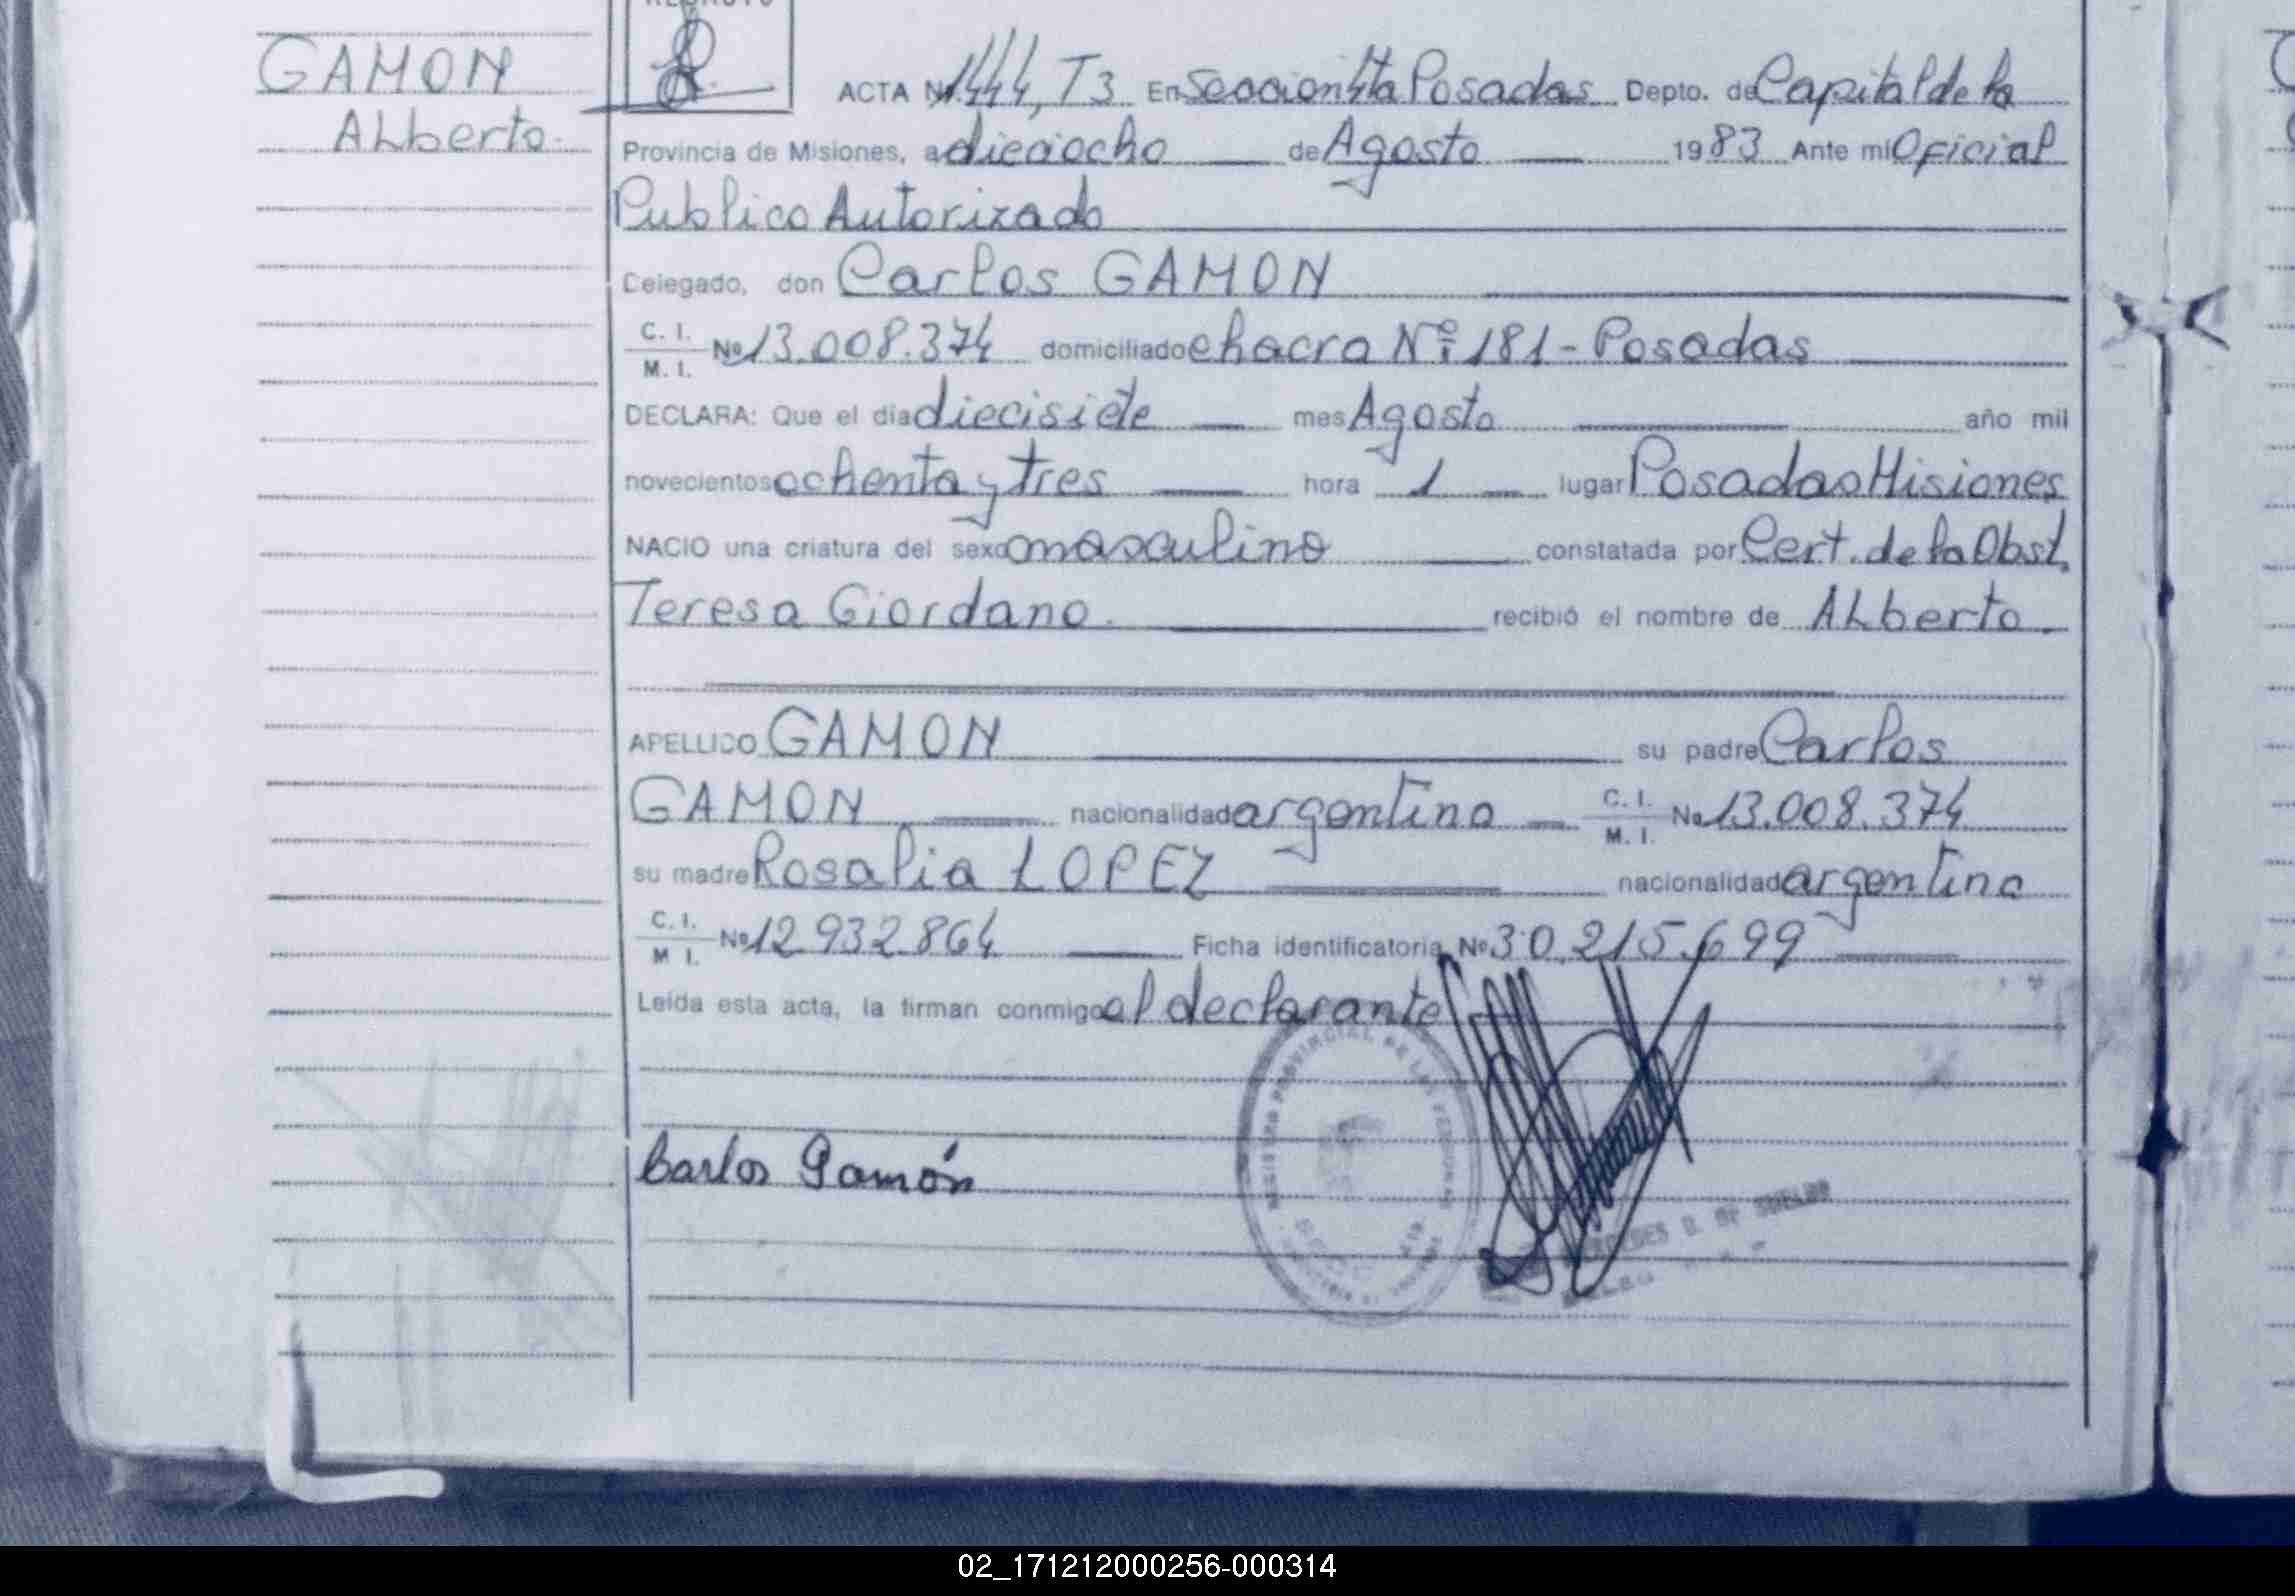 GAMON
Alberto.
ACTA Nº 1444, T3 En Seccion 4ta Posadas Depto. de Capital de la
Provincia de Misiones, a dieciocho de Agosto 1983 Ante mi Oficial
Publico Autorizado
Delegado, don Carlos GAMON
C. I.
M. I. Nº 13.008.374 domiciliado chacra Nº 181 - Posadas
DECLARA: Que el día diecisiete mes Agosto año mil
novecientos ochenta y tres hora 1 lugar Posadas Misiones
NACIO una criatura del sexo masculino constatada por Cert. de la Obst.
Teresa Giordano. recibió el nombre de Alberto.
APELLIDO GAMON su padre Carlos
GAMON nacionalidad argentina C. I.
M. I. Nº 13.008.374
su madre Rosalia LOPEZ nacionalidad argentina
C. I.
M I. Nº 12 932 864 Ficha identificatoria Nº 30.215.699
Leída esta acta, la firman conmigo el declarante
Carlos Gamón
REGISTRO PROVINCIAL DE LAS PERSONAS
02_171212000256-000314